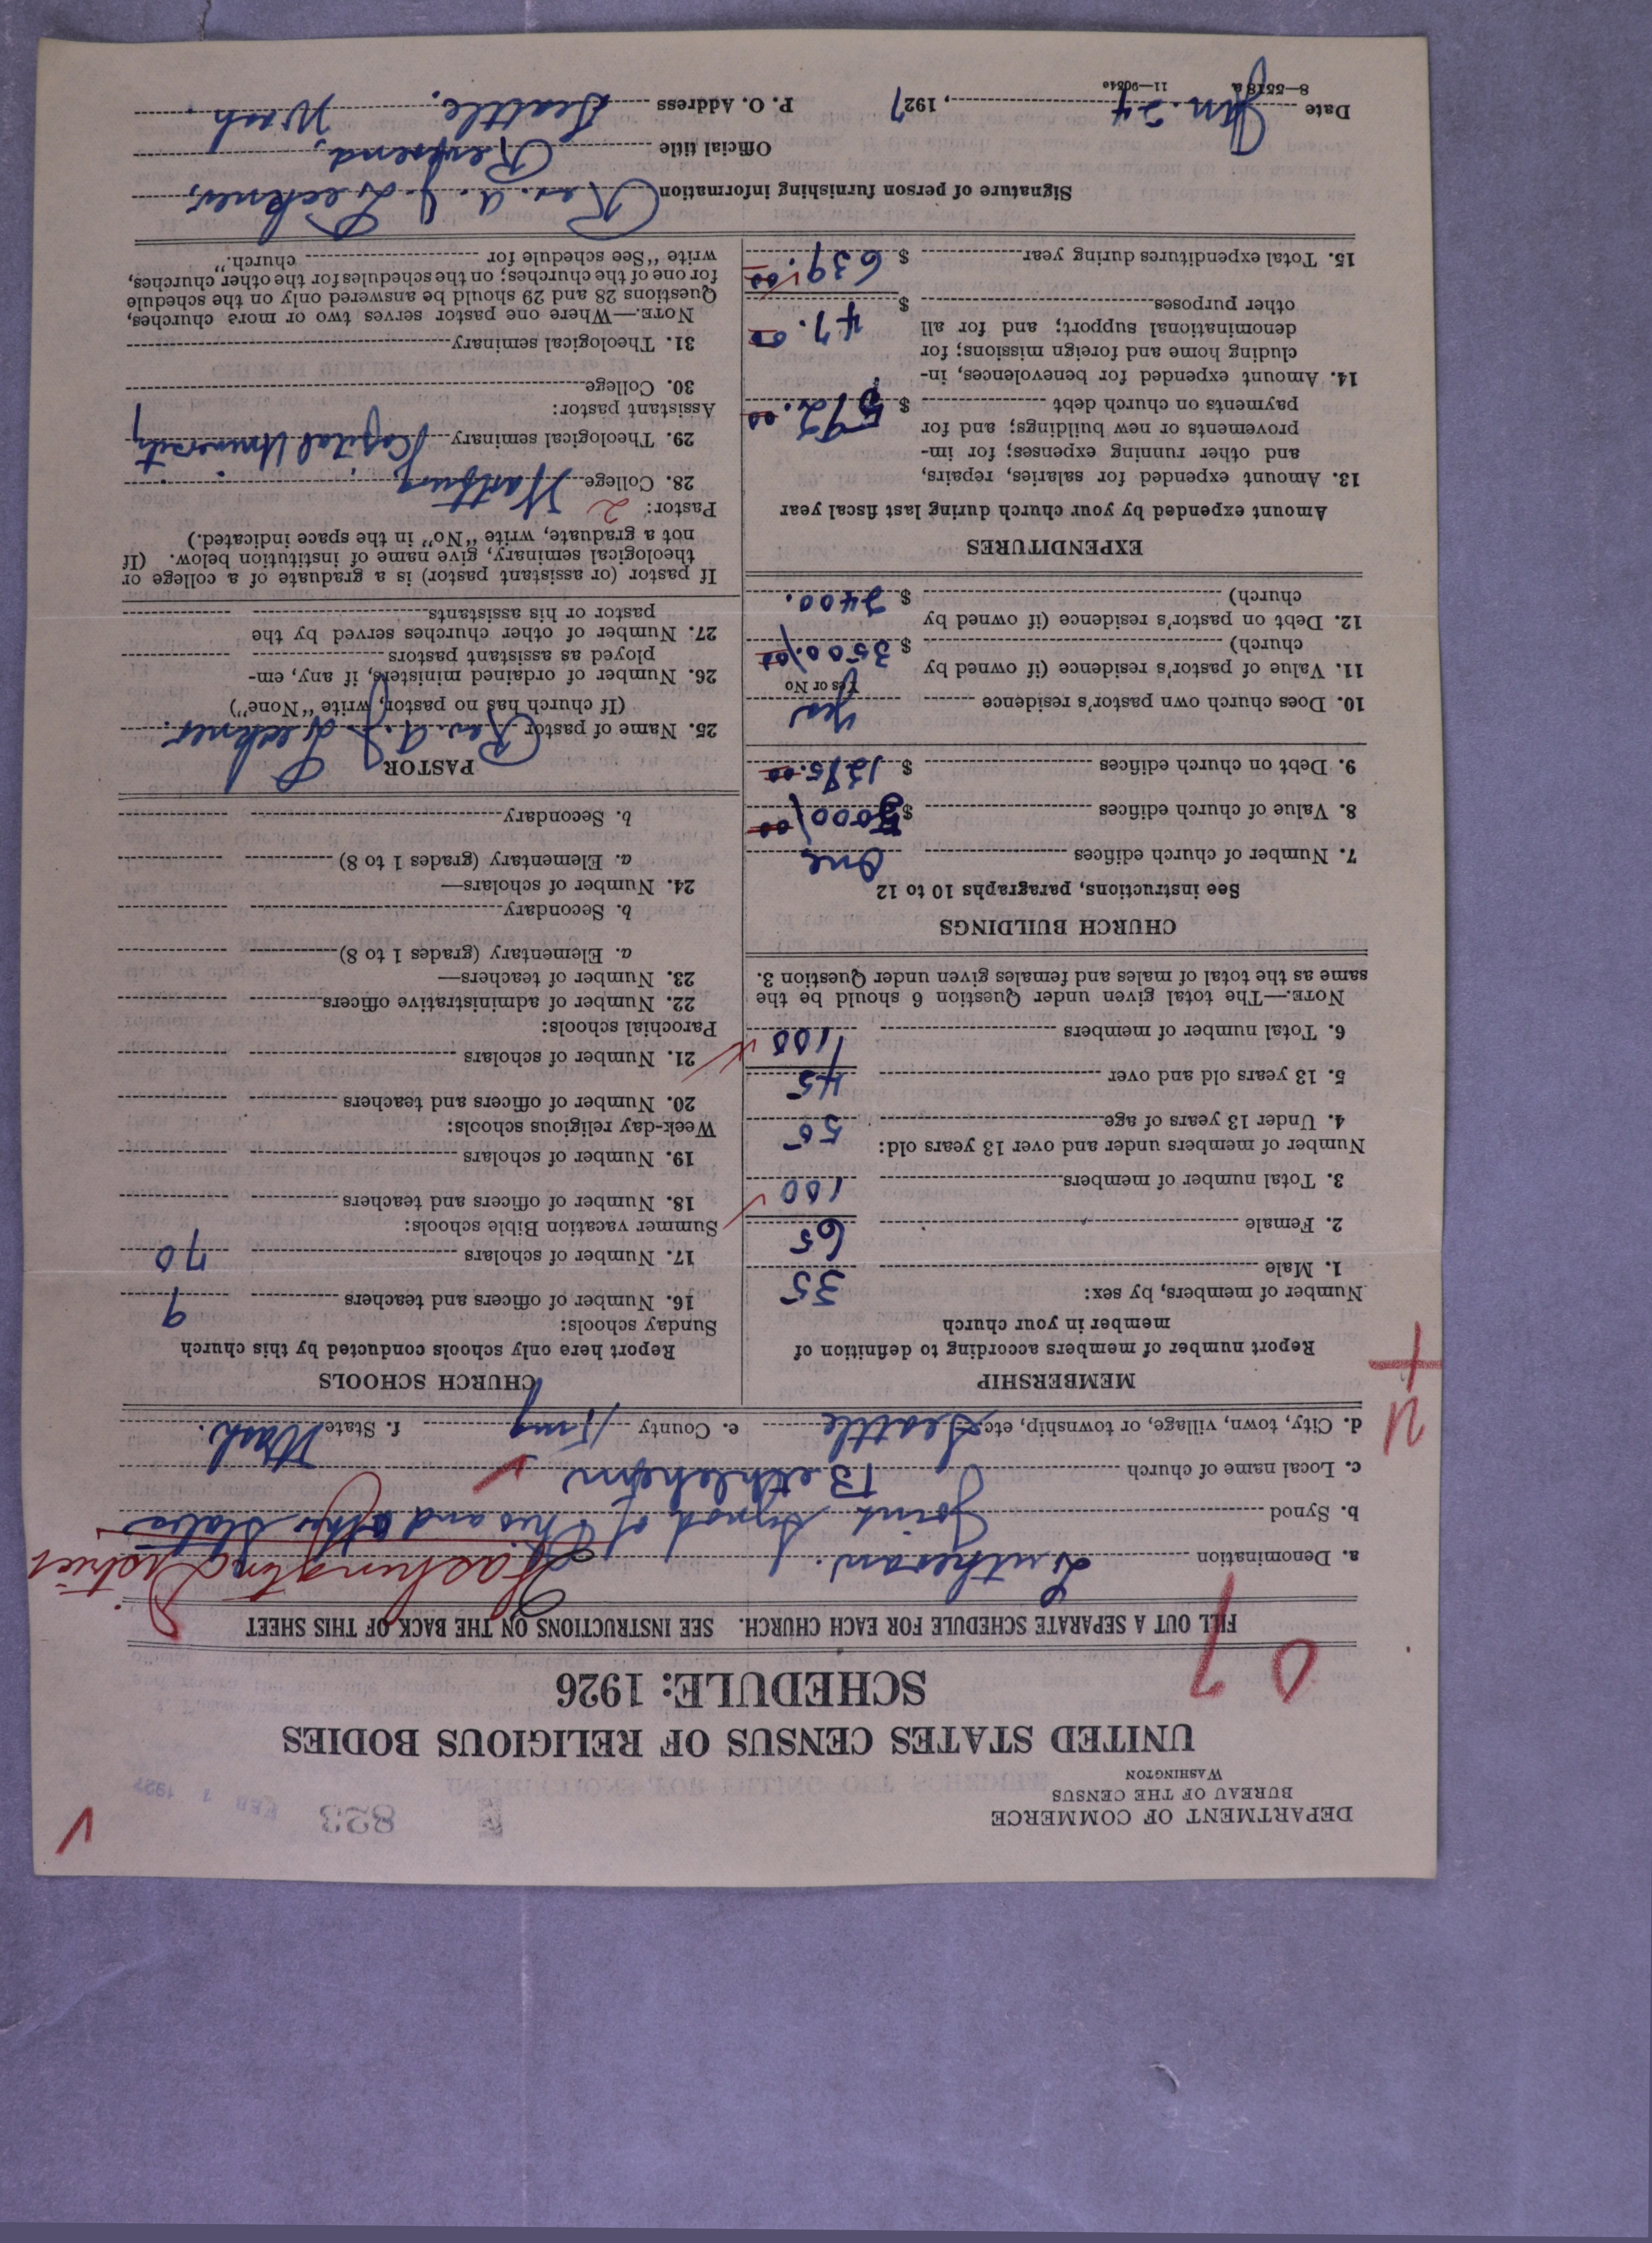 DEPARTMENT OF COMMERCE
BUREAU OF THE CENSUS
WASHINGTON
823
FEB 1 1927
UNITED STATES CENSUS OF RELIGIOUS BODIES
SCHEDULE: 1926
0 7
FILL OUT A SEPARATE SCHEDULE FOR EACH CHURCH. SEE INSTRUCTIONS ON THE BACK OF THIS SHEET
a. Denomination Lutheran. Washington District
b. Synod Joint Synod of Ohio and other States
c. Local name of church Bethlehem
d. City, town, village, or township, etc. Seattle e. County King f. State Wash.
MEMBERSHIP
Report number of members according to definition of
member in your church
Number of members, by sex:
1. Male 35
2. Female 65
3. Total number of members 100
Number of members under and over 13 years old:
4. Under 13 years of age 55
5. 13 years old and over 45
6. Total number of members 100
NOTE.—The total given under Question 6 should be the
same as the total of males and females given under Question 3.
CHURCH BUILDINGS
See instructions, paragraphs 10 to 12
7. Number of church edifices One
8. Value of church edifices $ 5000.00
9. Debt on church edifices $ 1275.00
10. Does church own pastor's residence Yes
Yes or No
11. Value of pastor's residence (if owned by
church) $ 3500.00
12. Debt on pastor's residence (if owned by
church) $ 2400.
EXPENDITURES
Amount expended by your church during last fiscal year
13. Amount expended for salaries, repairs,
and other running expenses; for im-
provements or new buildings; and for
payments on church debt $ 592.00
14. Amount expended for benevolences, in-
cluding home and foreign missions; for
denominational support; and for all
other purposes $ 47.00
15. Total expenditures during year $ 639.00
CHURCH SCHOOLS
Report here only schools conducted by this church
Sunday schools:
16. Number of officers and teachers 9
17. Number of scholars 70
Summer vacation Bible schools:
18. Number of officers and teachers
19. Number of scholars
Week-day religious schools:
20. Number of officers and teachers
21. Number of scholars
Parochial schools:
22. Number of administrative officers
23. Number of teachers—
a. Elementary (grades 1 to 8)
b. Secondary
24. Number of scholars—
a. Elementary (grades 1 to 8)
b. Secondary
PASTOR
25. Name of pastor Rev. A. J.
(If church has no pastor, write "None")
26. Number of ordained ministers, if any, em-
ployed as assistant pastors
27. Number of other churches served by the
pastor or his assistants
If pastor (or assistant pastor) is a graduate of a college or
theological seminary, give name of institution below. (If
not a graduate, write "No" in the space indicated.)
Pastor: 2
28. College Wartburg
29. Theological seminary Capital University
Assistant pastor:
30. College
31. Theological seminary
NOTE.—Where one pastor serves two or more churches,
Questions 28 and 29 should be answered only on the schedule
for one of the churches; on the schedules for the other churches,
write "See schedule for church."
Signature of person furnishing information Rev. A. J.
Official title Reverend,
Date Jan. 24, 1927 P. O. Address Seattle, Wash.
8—5518a